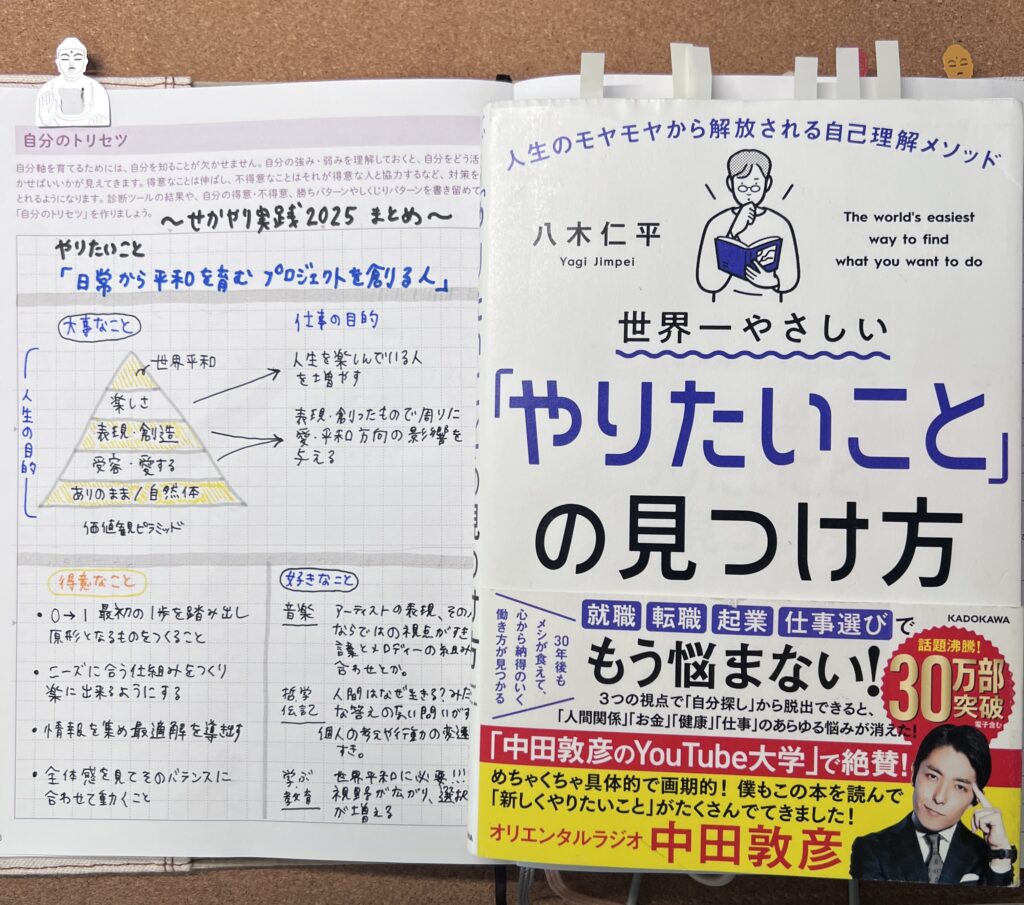 自分のトリセツ
自分軸を育てるためには、自分を知ることが欠かせません。自分の強み・弱みを理解しておくと、自分をどう活
かせばいいかが見えてきます。得意なことは伸ばし、不得意なことはそれが得意な人と協力するなど、対策を
とれるようになります。診断ツールの結果や、自分の得意・不得意、勝ちパターンやしくじりパターンを書き留めて
「自分のトリセツ」を作りましょう。
〜せかやり実践2025 まとめ〜
やりたいこと
「日常から平和を育む プロジェクトを創る人」
大事なこと
人生の目的
世界平和
楽しさ
表現・創造
受容・愛する
ありのまま/自然体
価値観ピラミッド
仕事の目的
人生を楽しんでいる人
を増やす
表現・創ったもので周りに
愛・平和方向の影響を
与える
得意なこと
・0→1 最初の1歩を踏み出し
原形となるものをつくること
・ニーズに合う仕組みをつくり
楽に出来るようにする
・情報を集め最適解を導き出す
・全体感を見てそのバランスに
合わせて動くこと
好きなこと
音楽 アーティストの表現、その人
ならではの視点がすき
言葉とメロディーの組み
合わせとか。
哲学 人間はなぜ生きる?みた
伝記 な答えのない問いがす
個人の考えや行動の変遷
すき。
学ぶ 世界平和に必要!!!
教育 視野が広がり、選択
が増える
人生のモヤモヤから解放される自己理解メソッド
八木仁平
Yagi Jimpei
The world's easiest
way to find
what you want to do
世界一やさしい
「やりたいこと」
の見つけ方
30年後も
メシが食えて、
心から納得のいく
働き方が見つかる
就職 転職 起業 仕事選びで
もう悩まない!
KADOKAWA
話題沸騰!
30万部
突破
電子含む
3つの視点で「自分探し」から脱出できると、
「人間関係」「お金」「健康」「仕事」のあらゆる悩みが消えた!
「中田敦彦のYouTube大学」で絶賛!
めちゃくちゃ具体的で画期的! 僕もこの本を読んで
「新しくやりたいこと」がたくさんでてきました!
オリエンタルラジオ 中田敦彦